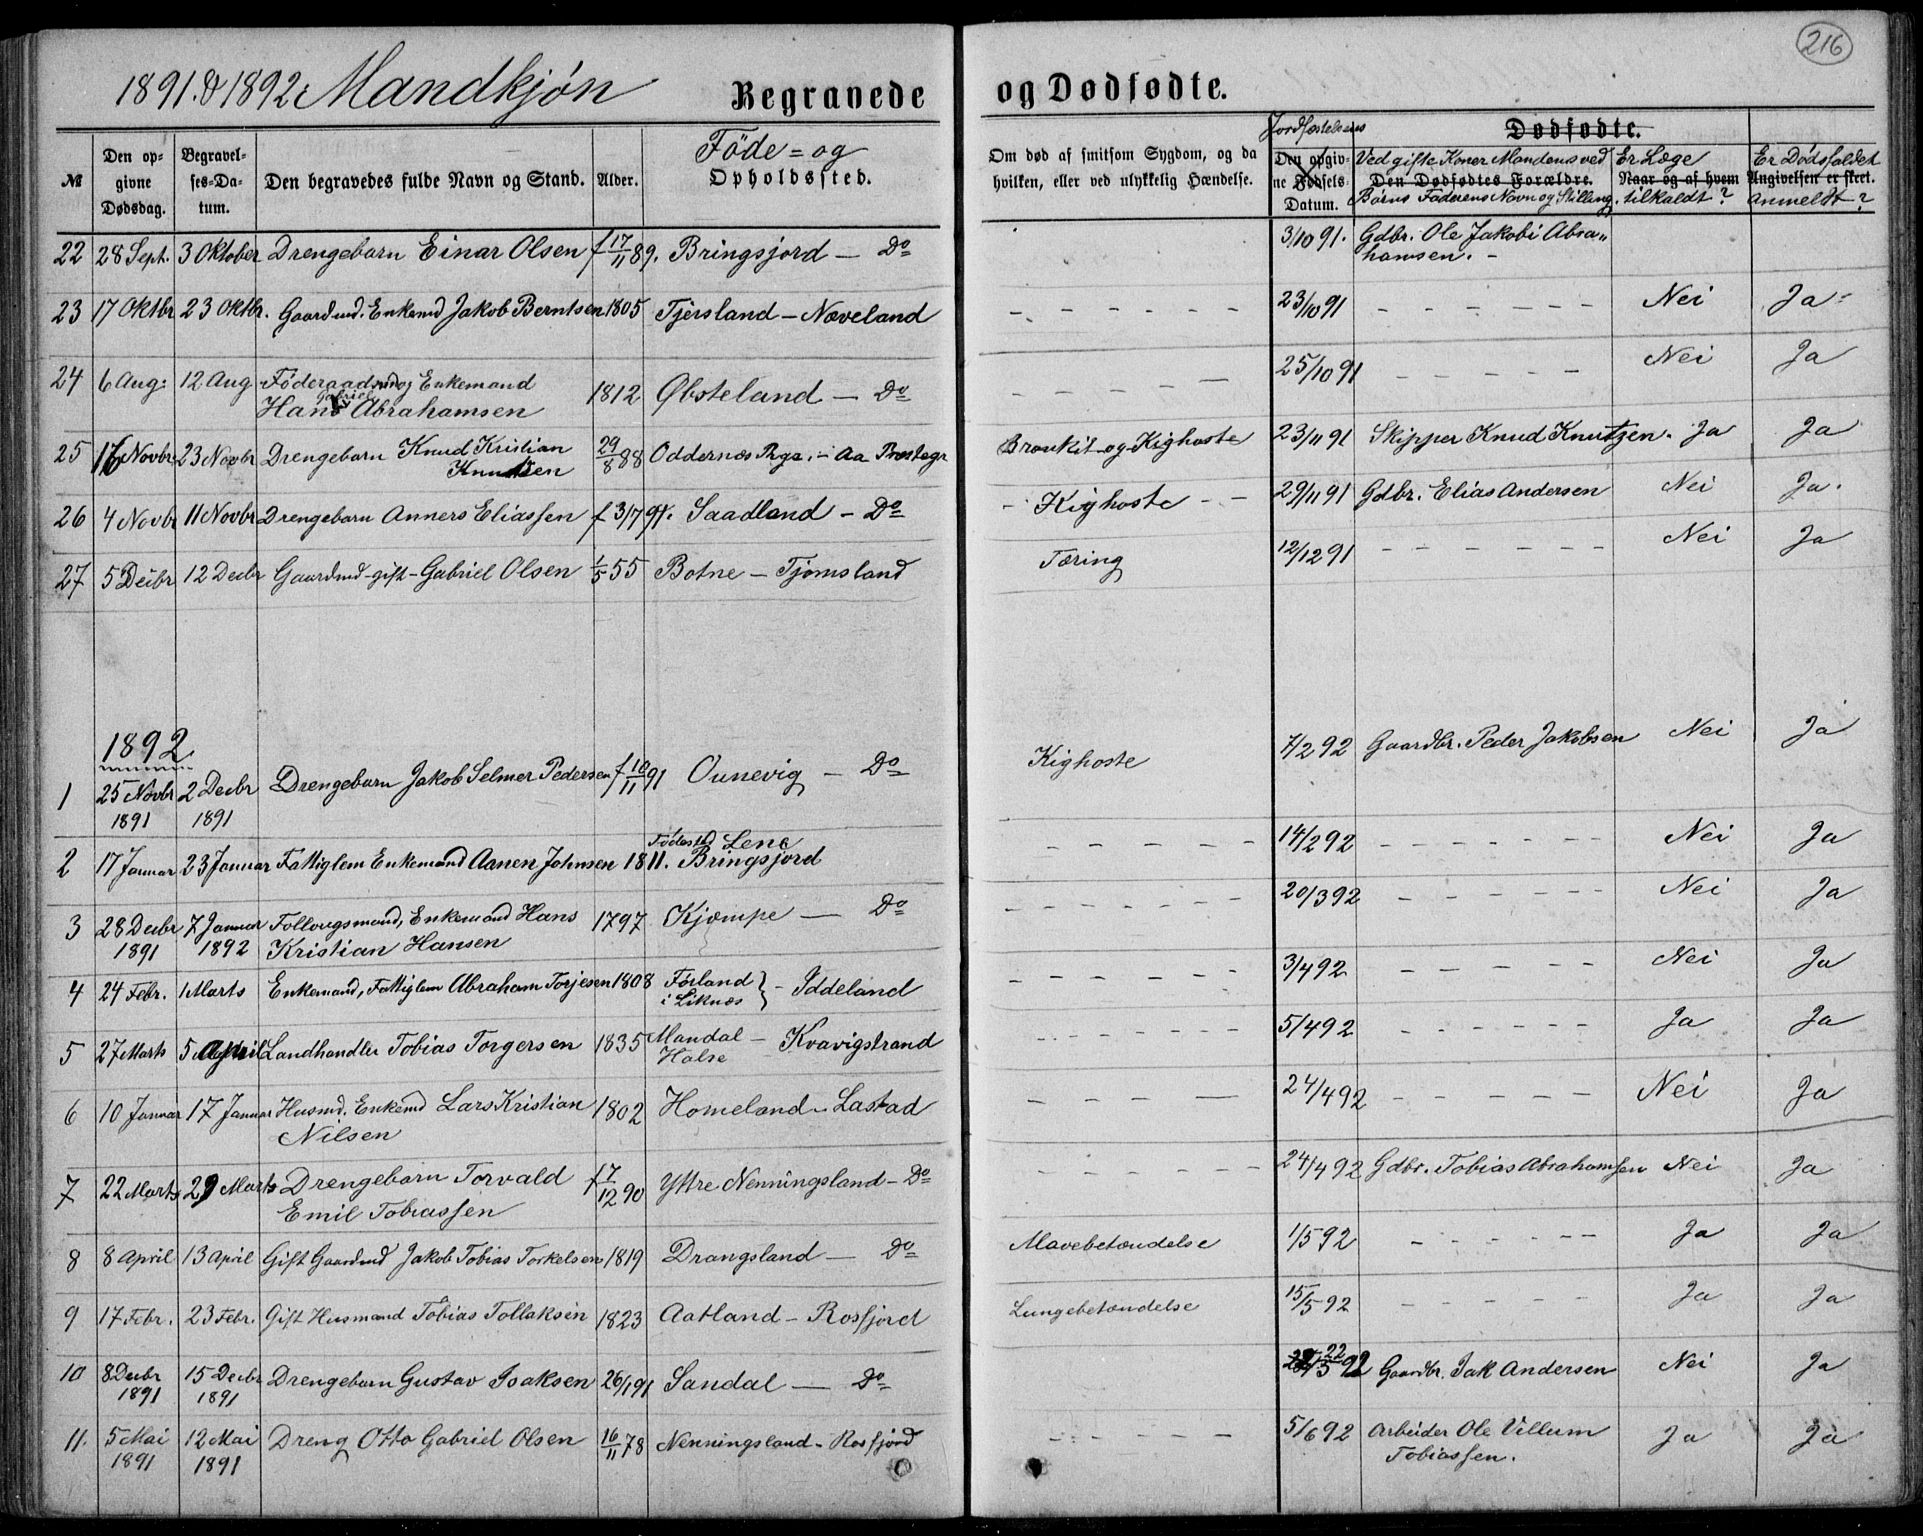 216
1891. & 1892. Mandkjøn Begravede og Dødfødte.
№ | Den opgivne Dødsdag. | Begravelses-Datum. | Den begravedes fulde Navn og Stand. | Alder. | Føde- og Opholdssted. | Om død af smitsom Sygdom, og da hvilken, eller ved ulykkelig Hændelse. | Jordfæstelsens Den opgivne Fødsels Datum. | Dødfødte. Ved gifte Koner Mandens ved Den Dødfødtes Forældre. Børns Faderens Navn og Stilling. | Er Læge Naar og af hvem tilkaldt? | Er Dødsfaldet Angivelsen er skeet. anmeldt?
22 | 28 Sept. | 3 Oktober | Drengebarn Einar Olsen | f 17/11 89. | Bringsjord — Do | | 3/10 91. | Gdbr. Ole Jakobi Abra„
hamsen. –
23 | 17 Oktbr | 23 Oktbr. | Gaardmd. Enkemd Jakob Berntsen | 1805 | Tjersland — Næveland | – – – – – – | 23/10 91 | – – – – – | Nei | Ja
24 | 6 Aug: | 12 Aug | Føderaadsmd og Enkemand
Hans Gabriel Abrahamsen | 1812 | Øbsteland — Do | – – – – – | 25/10 91 | – – – – – | Nei | Ja
25 | 16 Novbr | 23 Novbr | Drengebarn Knud Kristian
Knudsen | 29/8 88 | Oddernæs Prgs. – Aa Prestegr | Bronkit og Kighoste | 23/11 91 | Skipper Knud Knutzen. | Ja | Ja
26 | 4 Novbr | 11 Novbr | Drengebarn Anners Eliassen | f 3/7 91. | Saadland – Do | – Kighoste – – | 29/11 91 | Gdbr. Elias Andersen | Nei | Ja.
27 | 5 Decbr | 12 Decbr | Gaardmd – gift – Gabriel Olsen | 1/5 55 | Botne — Tjomsland | Tæring | 12/12 91 | – – – – – – | Nei | Ja
1892
1 | 25 Novbr 1891 | 2 Decbr 1891 | Drengebarn Jakob Selmer Pedersen | f 10/11 91 | Ounevig — Do | Kighoste | 7/2 92 | Gaardbr. Peder Jakobsen | Nei | Ja
2 | 17 Januar | 23 Januar | Fattiglem Enkemand Aanen Johnsen | 1811. | Fødested Lene
Bringsjord | – – – – – – | 14/2 92 | – – – – – – | Nei | Ja
3 | 28 Decbr 1891 | 7 Januar 1892 | Follougsmand, Enkemand Hans
Kristian Hansen | 1797 | Kjømpe — Do | – – – – – – – | 20/3 92 | – – – – – | Nei | Ja
4 | 24 Febr. | 1 Marts | Enkemand, Fattiglem Abraham Torjesen | 1808 | Førland
i Liknæs } – Iddeland | – – – – – – | 3/4 92 | – – – – – | Nei | Ja
5 | 27 Marts | 5 April | Landhandler Tobias Torgersen | 1835 | Mandal –
Halse Kvavigstrand | – – – – – – | 5/4 92 | – – – – – – | Ja | Ja
6 | 10 Januar | 17 Januar | Husmd. Enkemd Lars Kristian
Nilsen | 1802 | Homeland – Lastad | – – – – — | 24/4 92 | – – – – – – | Nei | Ja
7 | 22 Marts | 29 Marts | Drengebarn Torvald
Emil Tobiassen | f 17/12 90 | Yttre Nenningsland – Do | – – – – – – – | 24/4 92 | Gdbr. Tobias Abrahamsen | Nei | Ja
8 | 8 April | 13 April | Gift Gaardmd Jakob Tobias Torkelsen | 1819 | Drangsland — Do | Mavebetændelse | 1/5 92 | – – – – – – | Ja | Ja
9 | 17 Febr. | 23 Febr. | Gift Husmand Tobias Tollaksen | 1823 | Aatland – Rosfjord | Lungebetændelse | 15/5 92 | – – – – – | Ja | Ja
10 | 8 Decbr 1891 | 15 Decbr 1891 | Drengebarn Gustav Isaksen | 26/1 91 | Sandal — Do | | 22/5 92 | Gaardbr. Isak Andersen | Nei | Ja
11. | 5 Mai 1891 | 12 Mai 1891 | Dreng Otto Gabriel Olsen | 16/11 78 | Nenningsland – Rosfjord | – – – – – – | 5/6 92 | Arbeider Ole Villum
Tobiassen. | Ja | Ja